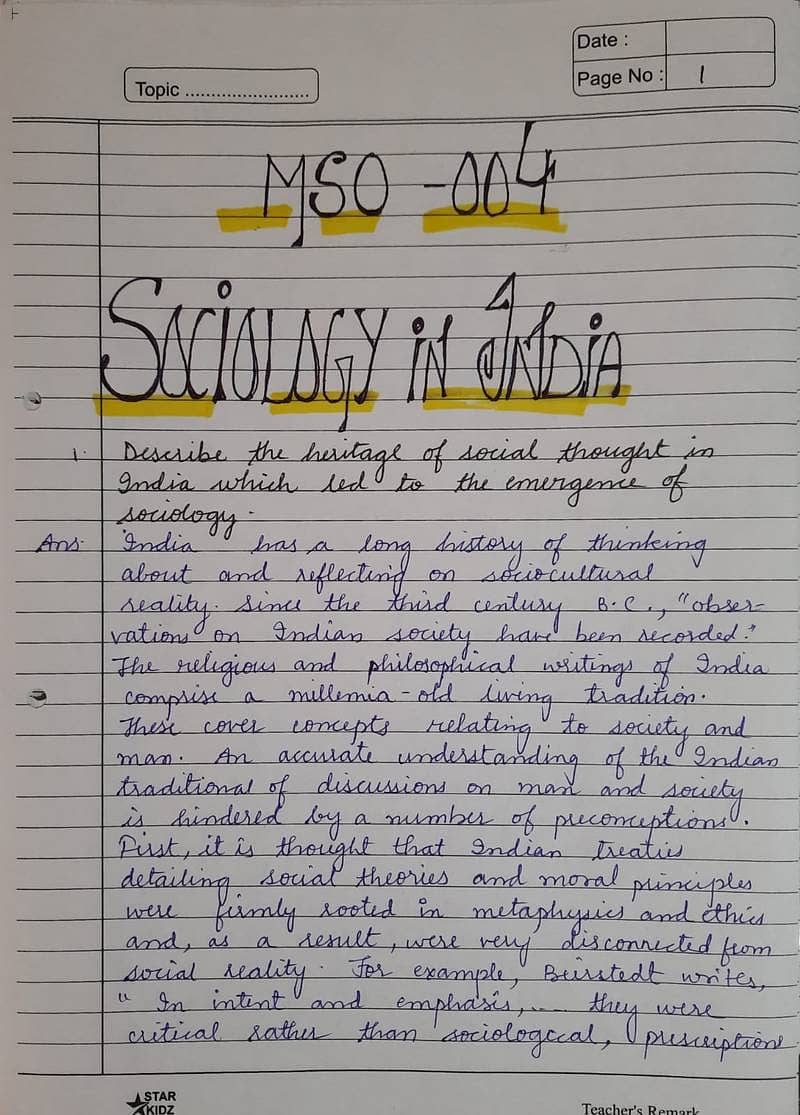 Date :
Page No : 1
Topic ........................
MSO -004
SOCIOLOGY iN INDiA
1. Describe the heritage of social thought in
India which led to the emergence of
sociology.
Ans. India has a long history of thinking
about and reflecting on sociocultural
reality. Since the third century B.C., "obser-
vations on Indian society have been recorded."
The religious and philosophical writings of India
comprise a millemia-old living tradition.
These cover concepts relating to society and
man. An accurate understanding of the Indian
traditional of discussions on man and society
is hindered by a number of preconceptions.
First, it is thought that Indian treaties
detailing social theories and moral principles
were firmly rooted in metaphysics and ethics
and, as a result, were very disconnected from
social reality. For example, Beirstedt writes,
" In intent and emphasis, .... they were
critical rather than sociologccal, prescriptions
STAR
KIDZ
Teacher's Remark